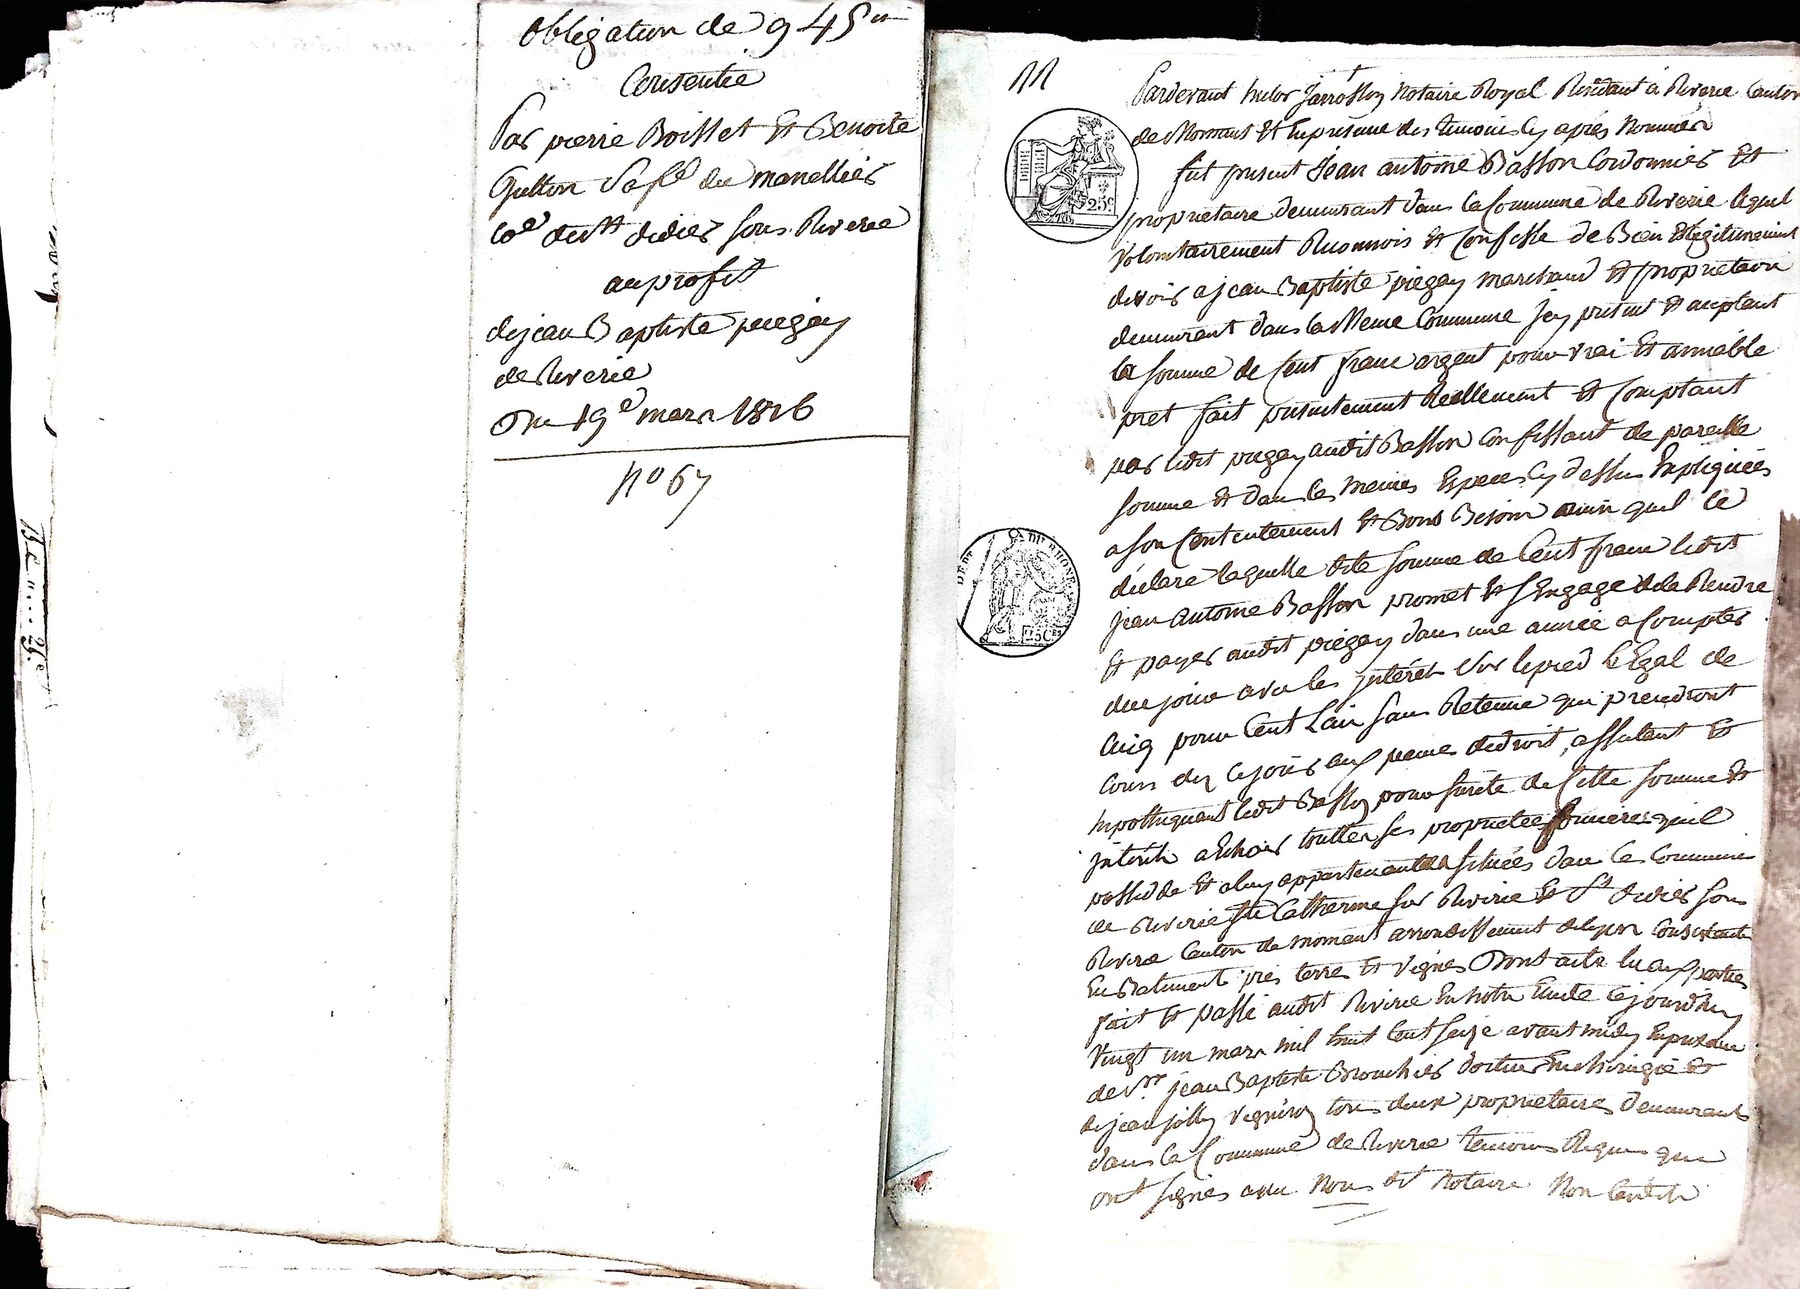 Obligation de 945 fr
Consentie
Par pierre Boisset Et Benoite
Gutton Sa fe du manellier
Coe de st didier sous Riverie
au profit
de jean Baptiste piegay
de Riverie
Du 19e mars 1816
No 67
Pardevant Jarrosson Notaire Royal Residant à Riverie Canton
de Mornant Et En présence des témoins Cy après Nommés
fut present Jean antoine Basson Cordonnier Et
proprietaire demeurant dans la Commune de Riverie lequel
volontairement Reconnois Et Confesse de Bien Et légitimement
devoir a jean Baptiste piegay marchand Et proprietaire
demeurant dans la Meme Commune Jcy présent Et acceptant
la somme de Cent franc argent pour vrai Et amiable
pret fait présentement Réellement Et Comptant
par ledit piegay audit Basson Confessant de pareille
somme Et dans les memes Especes Cy dessus Expliquées
a son Contentement Et Bons Besoin ainsi quil le
déclare laquelle dite somme de Cent franc ledit
jean Antoine Basson promet Et s'Engage de la Rendre
Et payer audit piegay dans une année a Compter
de ce jour avec les jntérêts sur le pied légal de
Cinq pour Cent Lan sans Retenue qui prendront
Cours dez cejour aux peines de droit, Et
hypothequant ledit Basson pour sureté de Cette somme Et
jntérêts a Echoir touttes ses proprietés foncieres quil
possede Et a luy appartenantes situées dans les Communes
de Riverie ste Catherine sur Riverie Et St didier sous
Riverie Canton de mornant arrondissement de lyon Consistants
En Batiments près terres Et vignes Dont acte lu aux parties
fait Et passé audit Riverie En notre Etude Cejourdhuy
Vingt un mars mil huit Cent seize avant midy En présence
de Sr jean Baptiste Brouchier docteur En chirurgie Et
de jean tous deux proprietaires demeurants
dans la Commune de Riverie temoins Requis qui
ont signés avec Nous dit Notaire Non
25 C.
DEPT DU RHONE
25 Cs